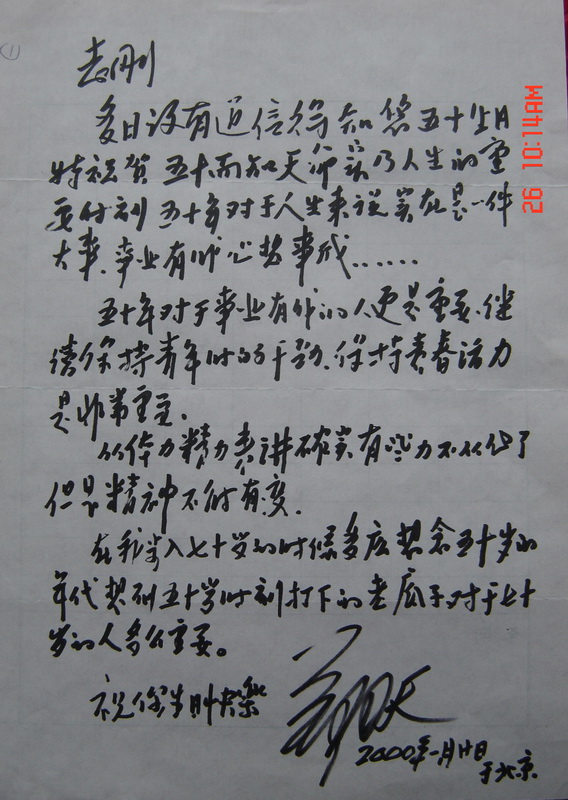 志刚
多日没有近信得知您五十生日
特祝贺五十而知天命实乃人生的重
要时刻五十年对于人生来说实在是一件
大事、事业有成心想事成……
五十年对于事业有成的人更是重要、继
续保持青年时的干劲、保持青春活力
是非常重要。
从体力精力来讲确实有些力不从心了
但是精神不能有变、
在我步入七十岁的时候多应想念五十岁的
年代想到五十岁时刻打下的老底子对于七十
岁的人多么重要。
祝你生日快乐
2000年一月廿日
于北京
26 10:14AM
(1)